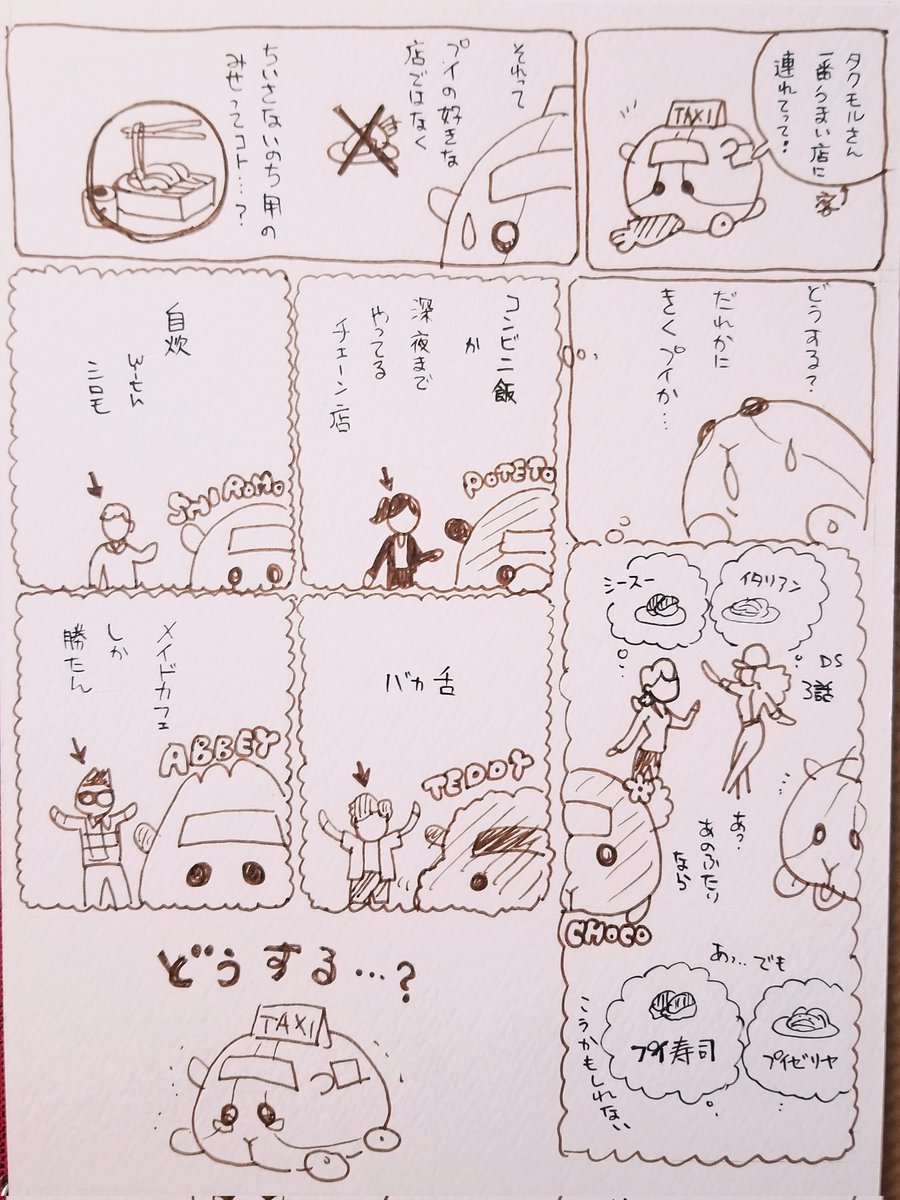 タクモルさん
一番うまい店に
連れてって!
客
TAXI
それって
プイの好きな
店ではなく
ちいさないのち用の
みせってコト…?
どうする?
だれかに
きくプイか…
コンビニ飯
か
深夜まで
やってる
チェーン店
POTETO
自炊
シロモ
SHIROMO
シースー
イタリアン
DS
3話
あっ
あのふたり
なら
CHOCO
バカ舌
TEDDY
メイドカフェ
しか
勝たん
ABBEY
あっ…でも
プイ寿司
プイゼリヤ
こうかもしれない
どうする…?
TAXI